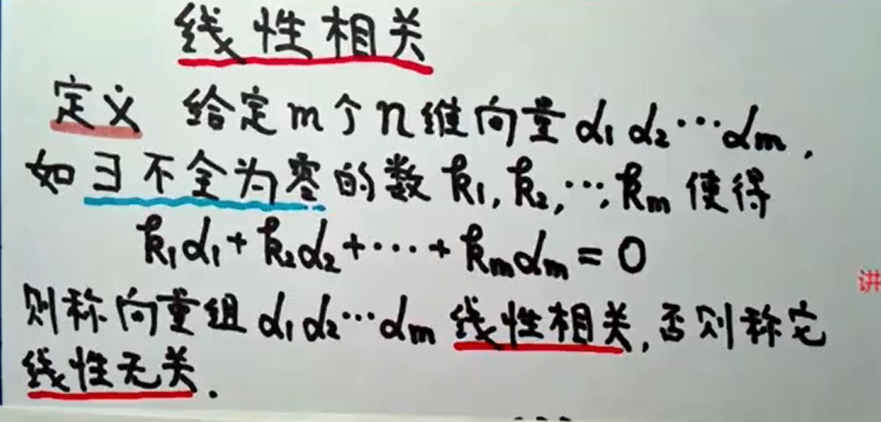 线性相关
定义 给定m个n维向量α₁ α₂⋯αm,
如∃不全为零的数k₁,k₂,⋯,km使得
k₁α₁+k₂α₂+⋯+kmαm=0
则称向量组α₁α₂⋯αm线性相关,否则称它
线性无关.
讲